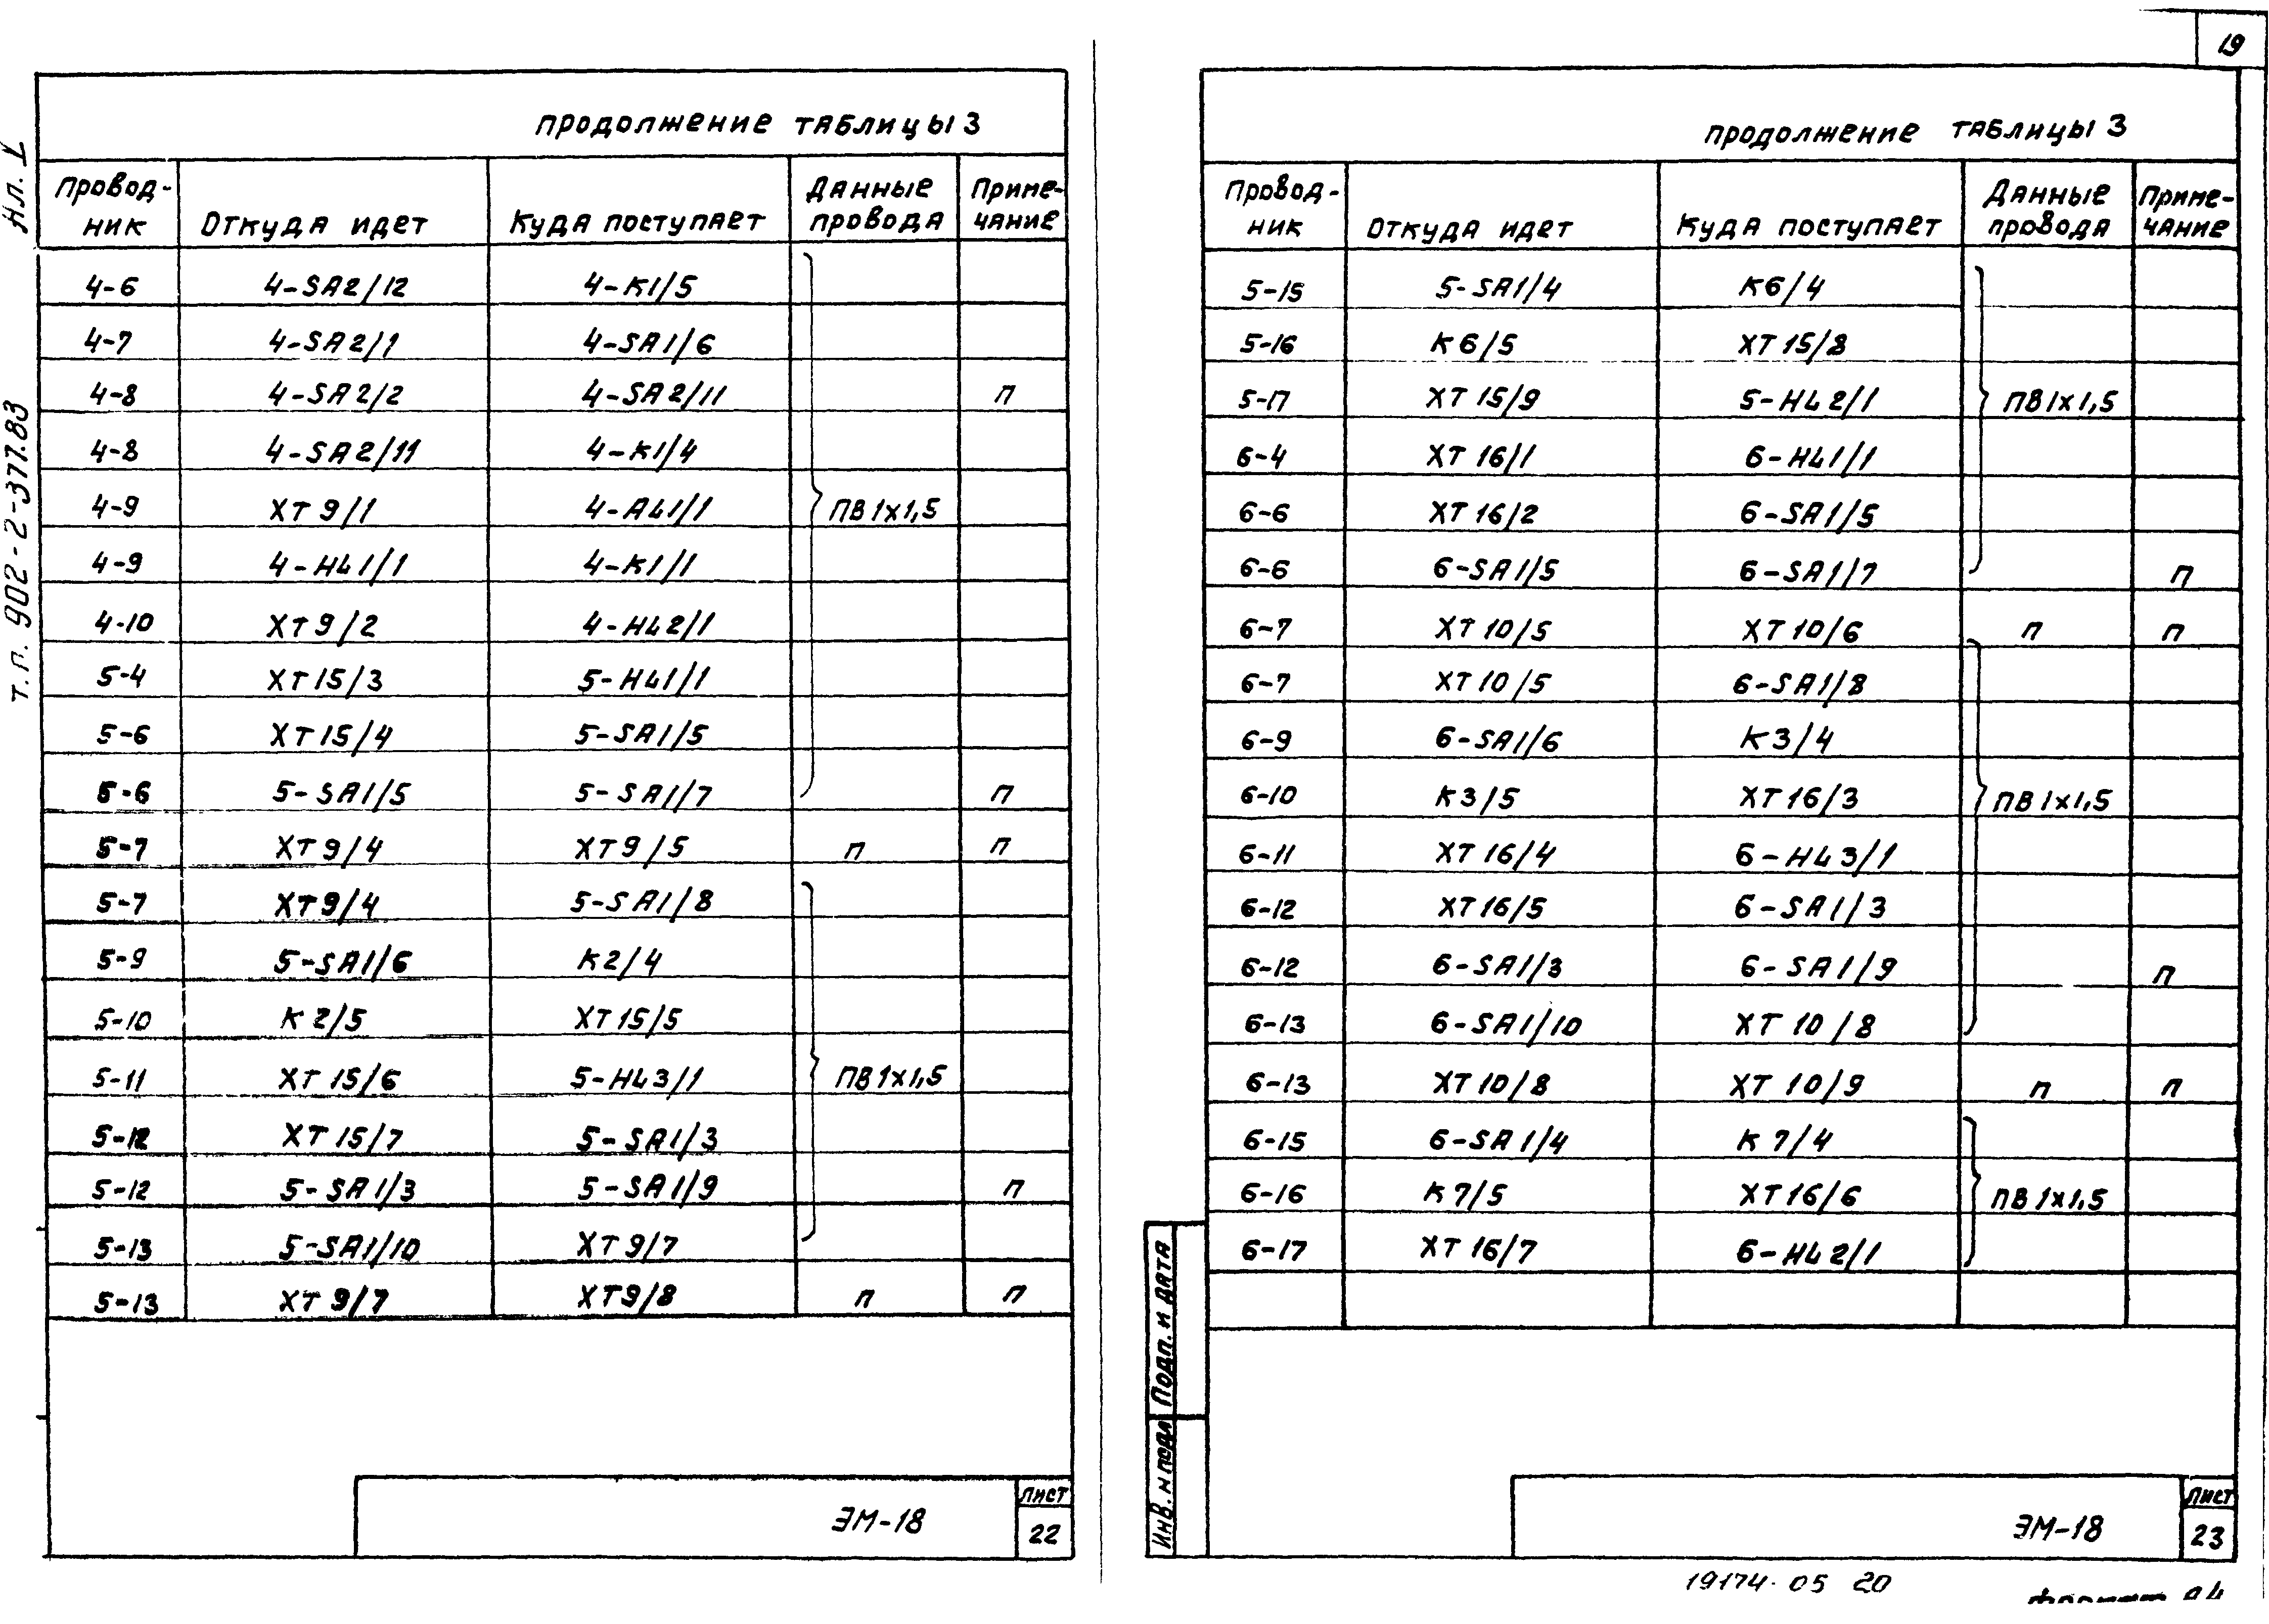 19
Ал. V
т.п. 902-2-377.83
продолжение таблицы 3
Провод-
ник | Откуда идет | Куда поступает | Данные провода | Приме-
чание
4-6 | 4-SA2/12 | 4-K1/5
4-7 | 4-SA2/1 | 4-SA1/6
4-8 | 4-SA2/2 | 4-SA2/11 | п
4-8 | 4-SA2/11 | 4-K1/4
4-9 | XT9/1 | 4-AL1/1 | ПВ1х1,5
4-9 | 4-HL1/1 | 4-K1/1
4-10 | XT9/2 | 4-HL2/1
5-4 | XT15/3 | 5-HL1/1
5-6 | XT15/4 | 5-SA1/5
5-6 | 5-SA1/5 | 5-SA1/7 | п
5-7 | XT9/4 | XT9/5 | п | п
5-7 | XT9/4 | 5-SA1/8
5-9 | 5-SA1/6 | K2/4
5-10 | K2/5 | XT15/5
5-11 | XT15/6 | 5-HL3/1 | ПВ1х1,5
5-12 | XT15/7 | 5-SA1/3
5-12 | 5-SA1/3 | 5-SA1/9 | п
5-13 | 5-SA1/10 | XT9/7
5-13 | XT9/7 | XT9/8 | п | п
ЭМ-18
Лист
22
продолжение таблицы 3
Провод-
ник | Откуда идет | Куда поступает | Данные провода | Приме-
чание
5-15 | 5-SA1/4 | K6/4
5-16 | K6/5 | XT15/8
5-17 | XT15/9 | 5-HL2/1 | ПВ1х1,5
6-4 | XT16/1 | 6-HL1/1
6-6 | XT16/2 | 6-SA1/5
6-6 | 6-SA1/5 | 6-SA1/7 | п
6-7 | XT10/5 | XT10/6 | п | п
6-7 | XT10/5 | 6-SA1/8
6-9 | 6-SA1/6 | K3/4
6-10 | K3/5 | XT16/3 | ПВ1х1,5
6-11 | XT16/4 | 6-HL3/1
6-12 | XT16/5 | 6-SA1/3
6-12 | 6-SA1/3 | 6-SA1/9 | п
6-13 | 6-SA1/10 | XT10/8
6-13 | XT10/8 | XT10/9 | п | п
6-15 | 6-SA1/4 | K7/4
6-16 | K7/5 | XT16/6 | ПВ1х1,5
6-17 | XT16/7 | 6-HL2/1
Подп. и дата
Инв. N подл
ЭМ-18
Лист
23
19174-05 20